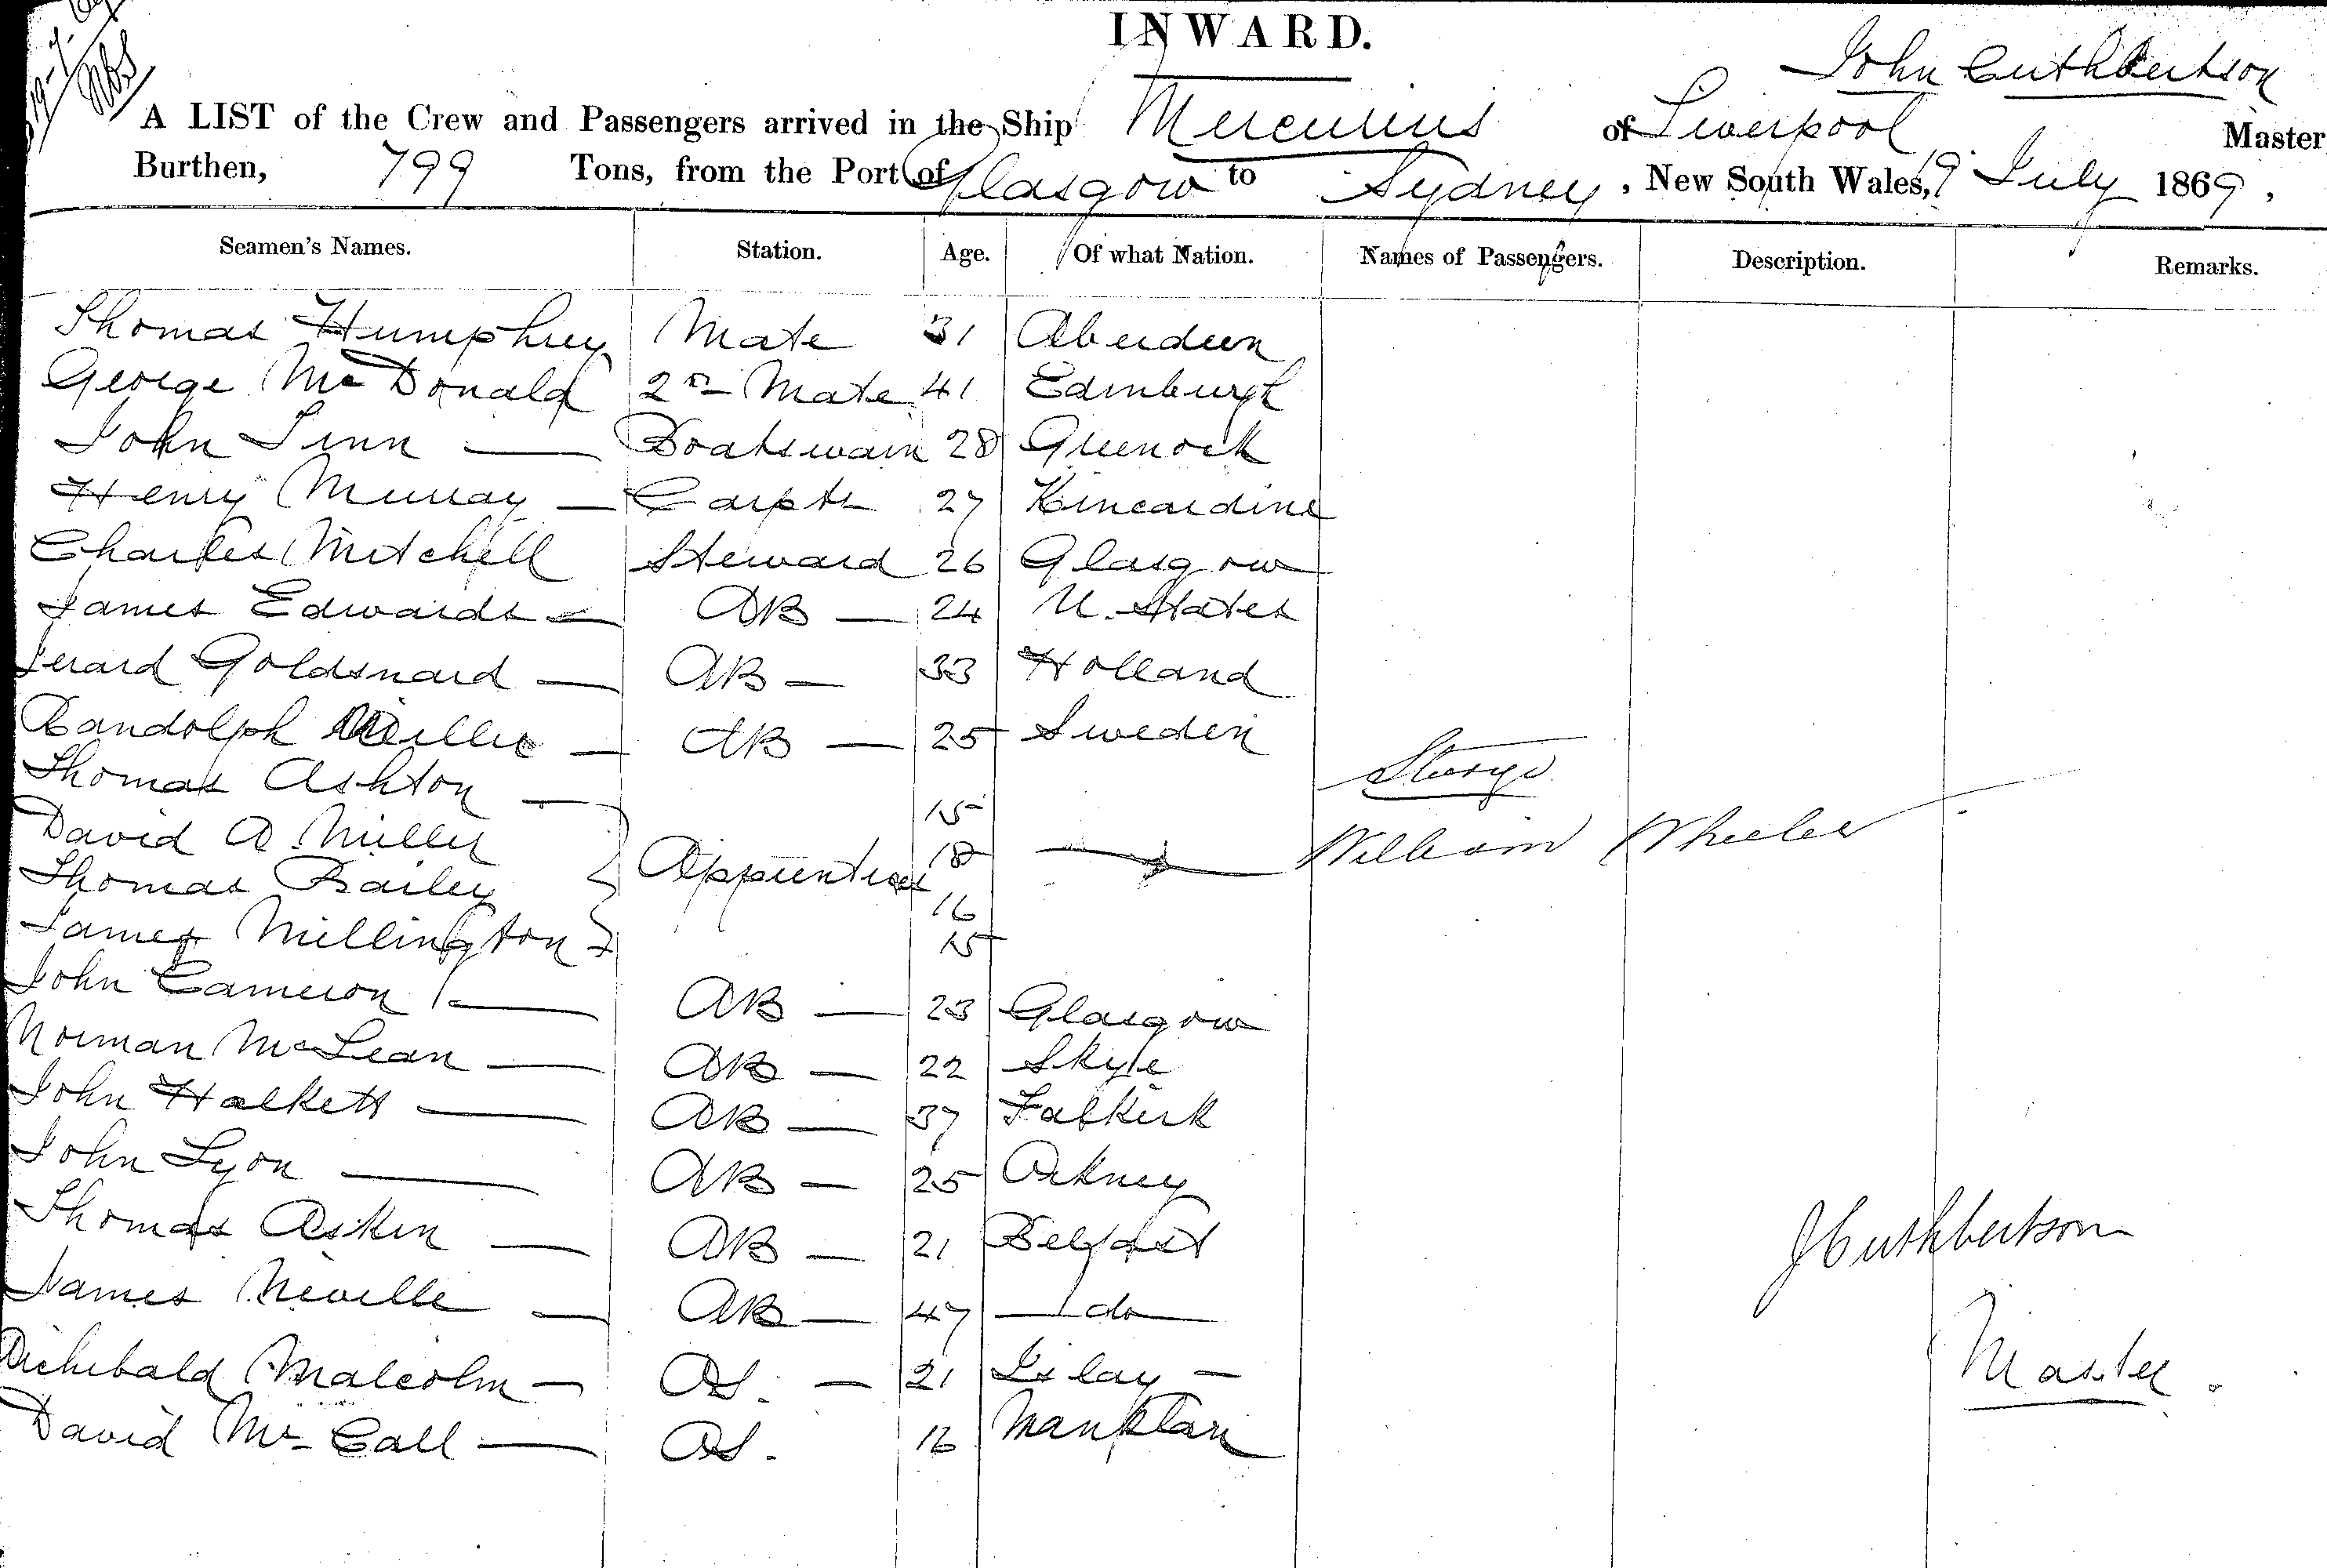 INWARD.
John Cuthbertson
A LIST of the Crew and Passengers arrived in the Ship Mercurius of Liverpool Master
Burthen, 799 Tons, from the Port of Glasgow to Sydney, New South Wales, 19 July 1869,
Seamen's Names. Station. Age. Of what Nation. Names of Passengers. Description. Remarks.
Thomas Humphrey Mate 31 Aberdeen
George McDonald 2nd Mate 41 Edinburgh
John Linn Boatswain 28 Greenock
Henry Murray Carptr 27 Kincardine
Charles Mitchell Steward 26 Glasgow
James Edwards AB 24 U. States
Jerard Goldsnard AB 33 Holland
Randolph AB 25 Sweden
Steerage
Thomas Ashton 15
David A Miller 18 William Wheeler
Apprentices
Thomas Bailey 16
James Millington 15
John Cameron AB 23 Glasgow
Norman McLean AB 22 Skye
John Halkett AB 37 Falkirk
John Lyon AB 25 Orkney
Thomas Asken AB 21 Belfast
James Neville AB 47 do
Archibald Malcolm OS. 21 Islay
David McCall OS. 16
J Cuthbertson
Master.